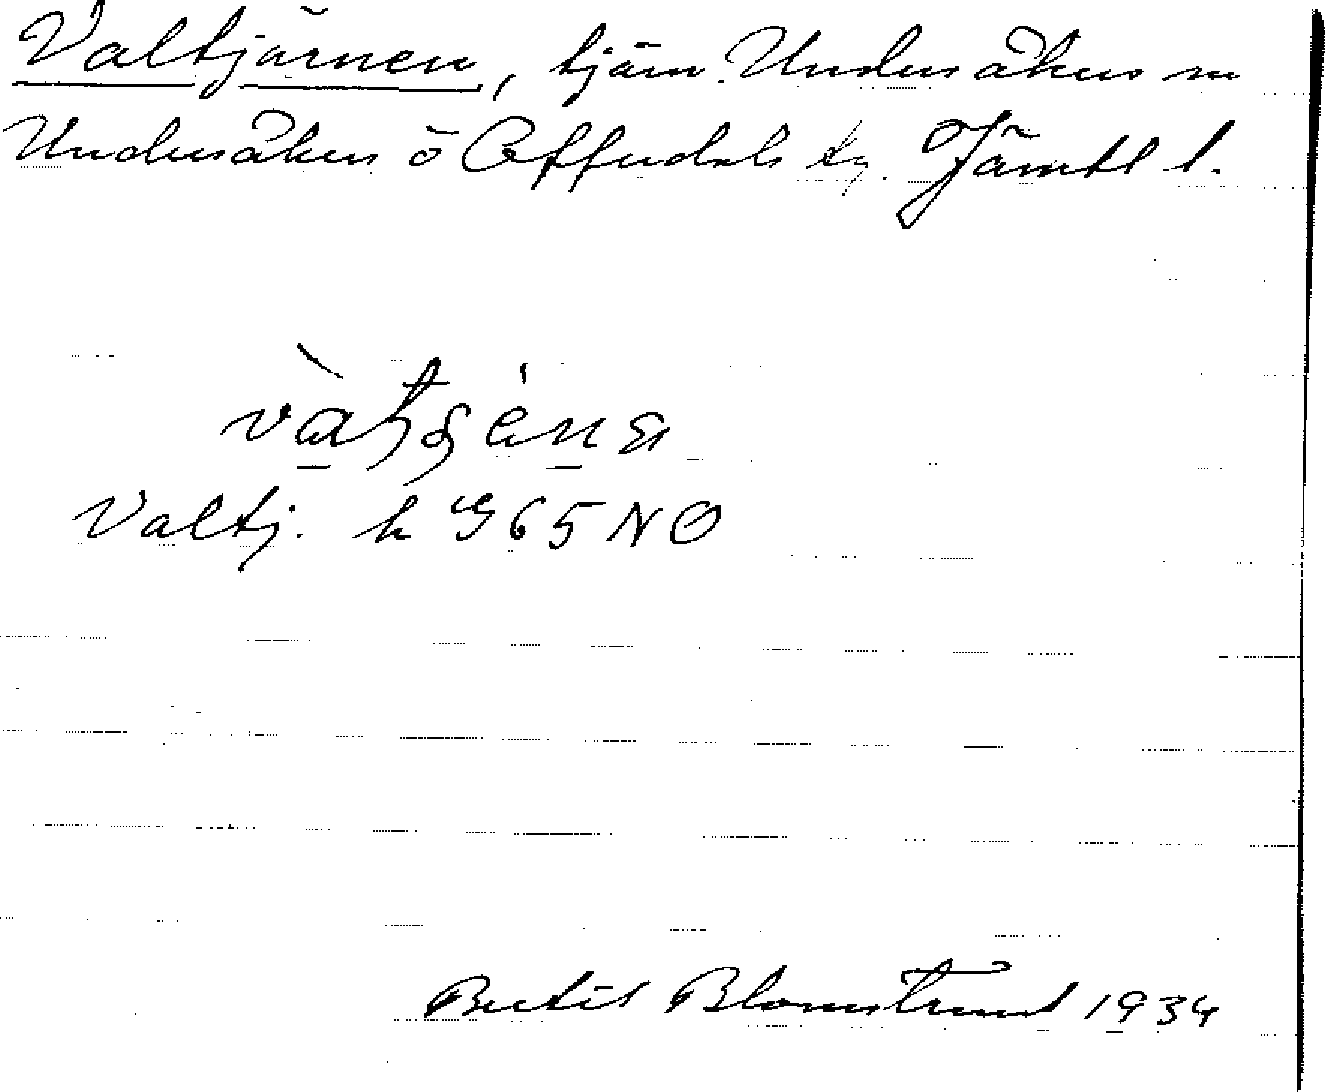 Valtjärnen, tjärn. Undersåkers sn
Undersåkers o Offerdals tg. Jämtl l.
Valtj. k G65 NO
Bertil Blomstrand 1934